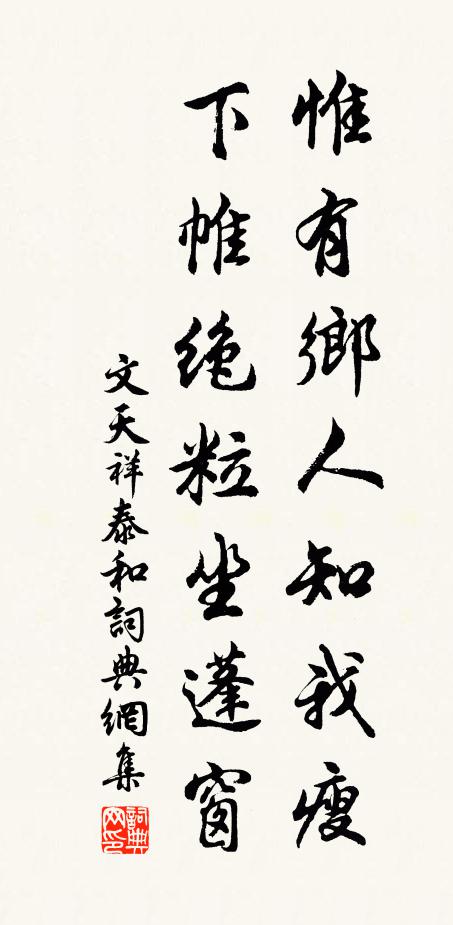 惟有鄉人知我瘦
下帷絶粒坐蓬窗
文天祥泰和詞典網集
詞典
网印